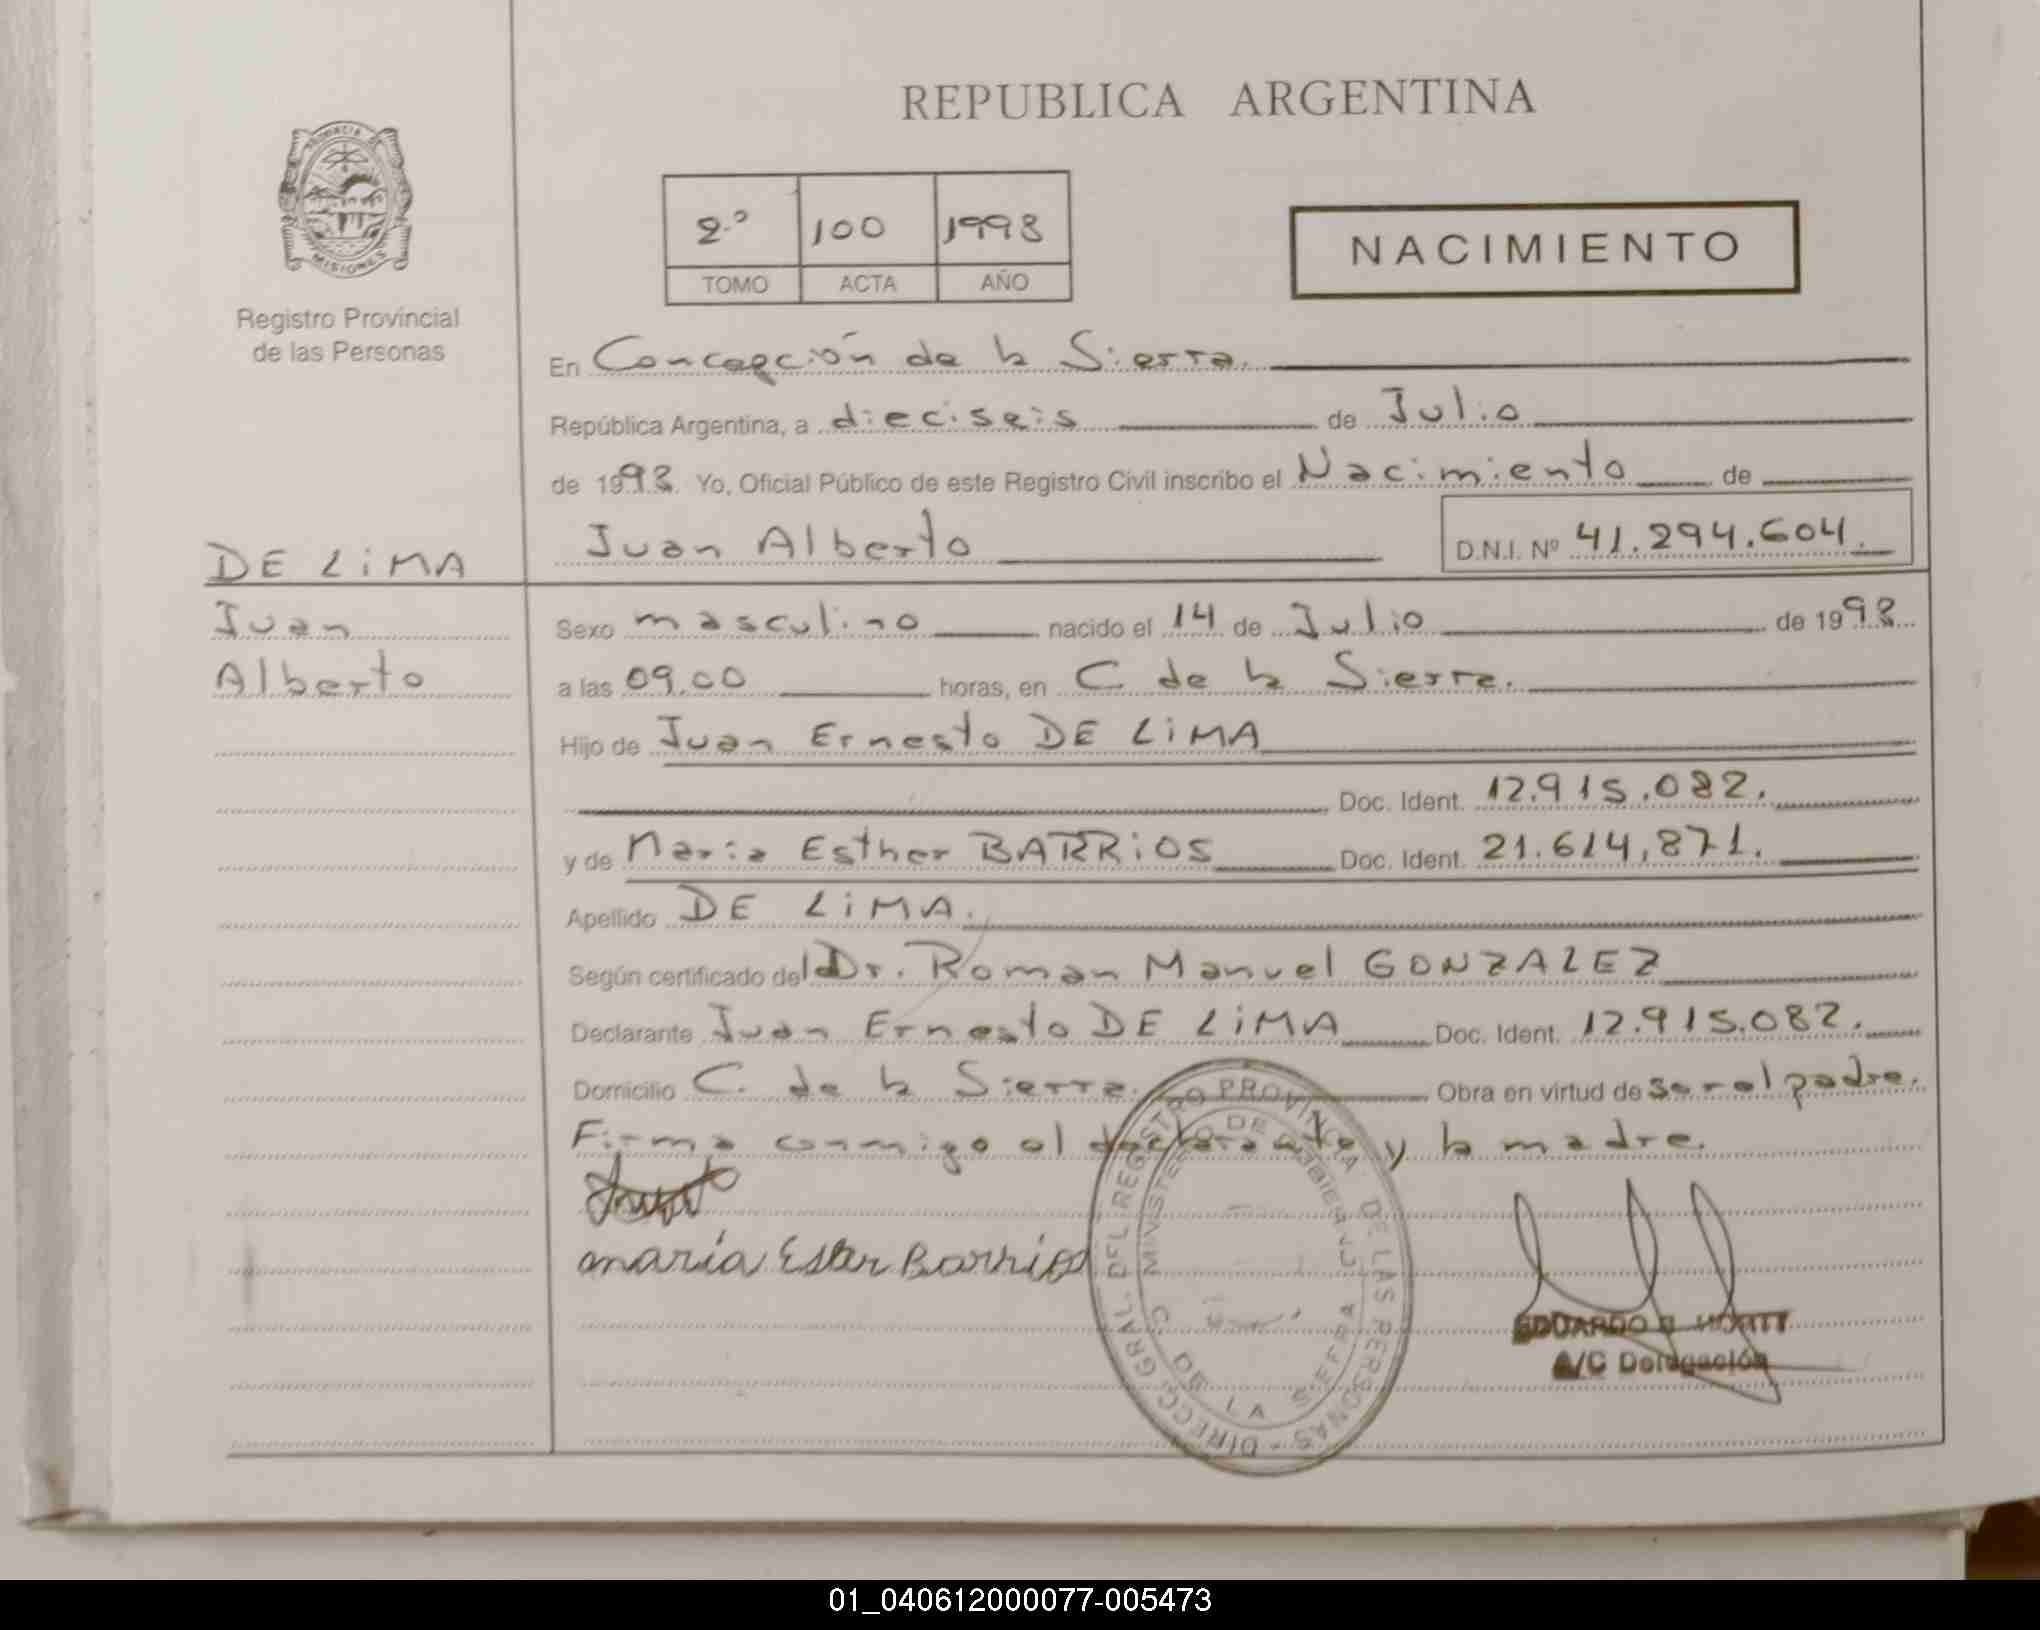 REPUBLICA ARGENTINA
PROVINCIA DE
MISIONES
Registro Provincial
de las Personas
2º 100 1998
TOMO ACTA AÑO
NACIMIENTO
En Concepción de la Sierra.
República Argentina, a dieciseis de Julio
de 1998. Yo, Oficial Público de este Registro Civil inscribo el Nacimiento de
Juan Alberto D.N.I. Nº 41.294.604.
DE LiMA
Juan
Alberto
Sexo masculino nacido el 14 de Julio de 1998
a las 09.00 horas, en C de la Sierra.
Hijo de Juan Ernesto DE LiMA
Doc. Ident. 12.915.082.
y de Maria Esther BARRiOS Doc. Ident. 21.614.871.
Apellido DE LiMA.
Según certificado del Dr. Roman Manuel GONZALEZ
Declarante Juan Ernesto DE LiMA Doc. Ident. 12.915.082.
Domicilio C. de la Sierra. Obra en virtud de ser el padre.
Firma conmigo el declarante y la madre.
maria Ester Barrios
DIRECC. GRAL. DEL REGISTRO PROVINCIAL DE LAS PERSONAS
MINISTERIO DE GOBIERNO
C. DE LA SIERRA
EDUARDO
A/C Delegación
01_040612000077-005473